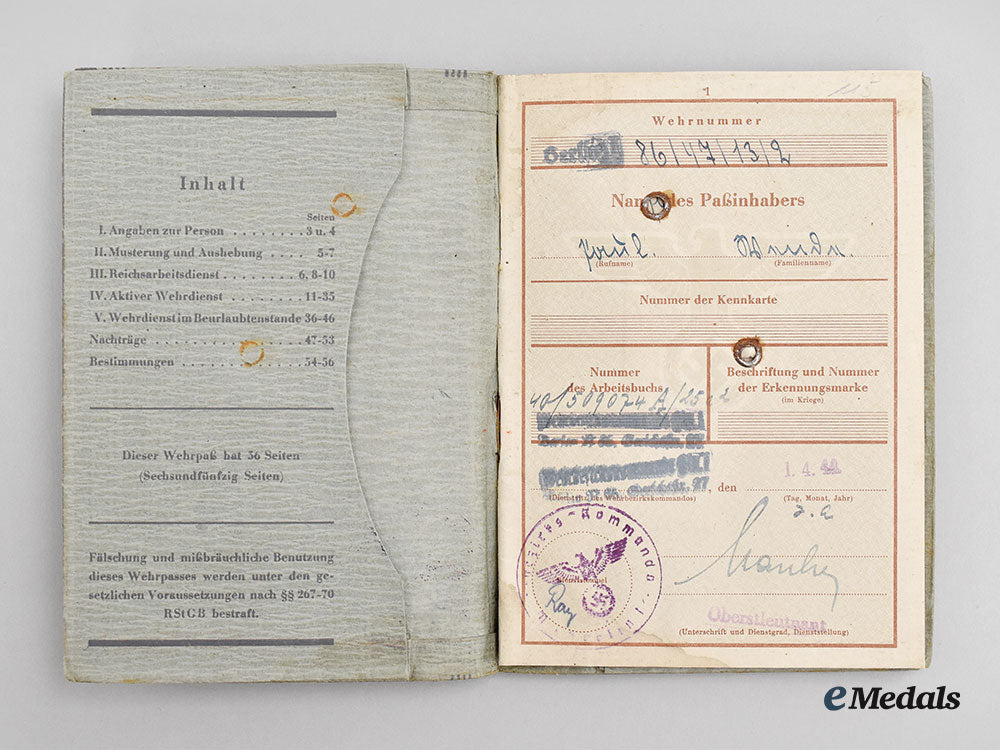 Inhalt
Seiten
I. Angaben zur Person ........ 3 u. 4
II. Musterung und Aushebung .... 5-7
III. Reichsarbeitsdienst ......... 6, 8-10
IV. Aktiver Wehrdienst ........ 11-35
V. Wehrdienst im Beurlaubtenstande 36-46
Nachträge ............... 47-53
Bestimmungen ............ 54-56
Dieser Wehrpaß hat 56 Seiten
(Sechsundfünfzig Seiten)
Fälschung und mißbräuchliche Benutzung
dieses Wehrpasses werden unter den ge-
setzlichen Voraussetzungen nach §§ 267-70
RStGB bestraft.
1
Wehrnummer
Berlin 86/47/13/2
des Paßinhabers
Paul
(Rufname) (Familienname)
Nummer der Kennkarte
Nummer
des Arbeitsbuchs
40/509074
Beschriftung und Nummer
der Erkennungsmarke
(im Kriege)
, den 1. 4.
(Dienstsitz des Wehrbezirkskommandos) (Tag, Monat, Jahr)
Kommando
Oberstleutnant
(Unterschrift und Dienstgrad, Dienststellung)
eMedals